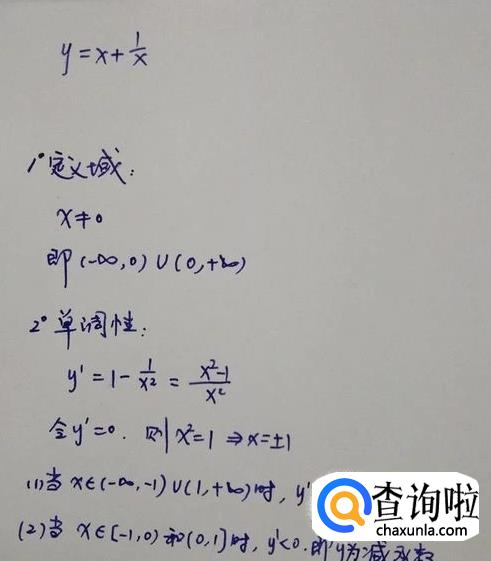 y = x + 1/x
1° 定义域:
x ≠ 0
即 (-∞, 0) ∪ (0, +∞)
2° 单调性:
y' = 1 - 1/x² = (x²-1)/x²
令 y' = 0. 则 x² = 1 ⇒ x = ±1
(1) 当 x∈(-∞, -1) ∪ (1, +∞) 时, y'
(2) 当 x∈[-1, 0) 和 (0, 1] 时, y' < 0. 即 y 为减函数
查询啦
chaxunla.com